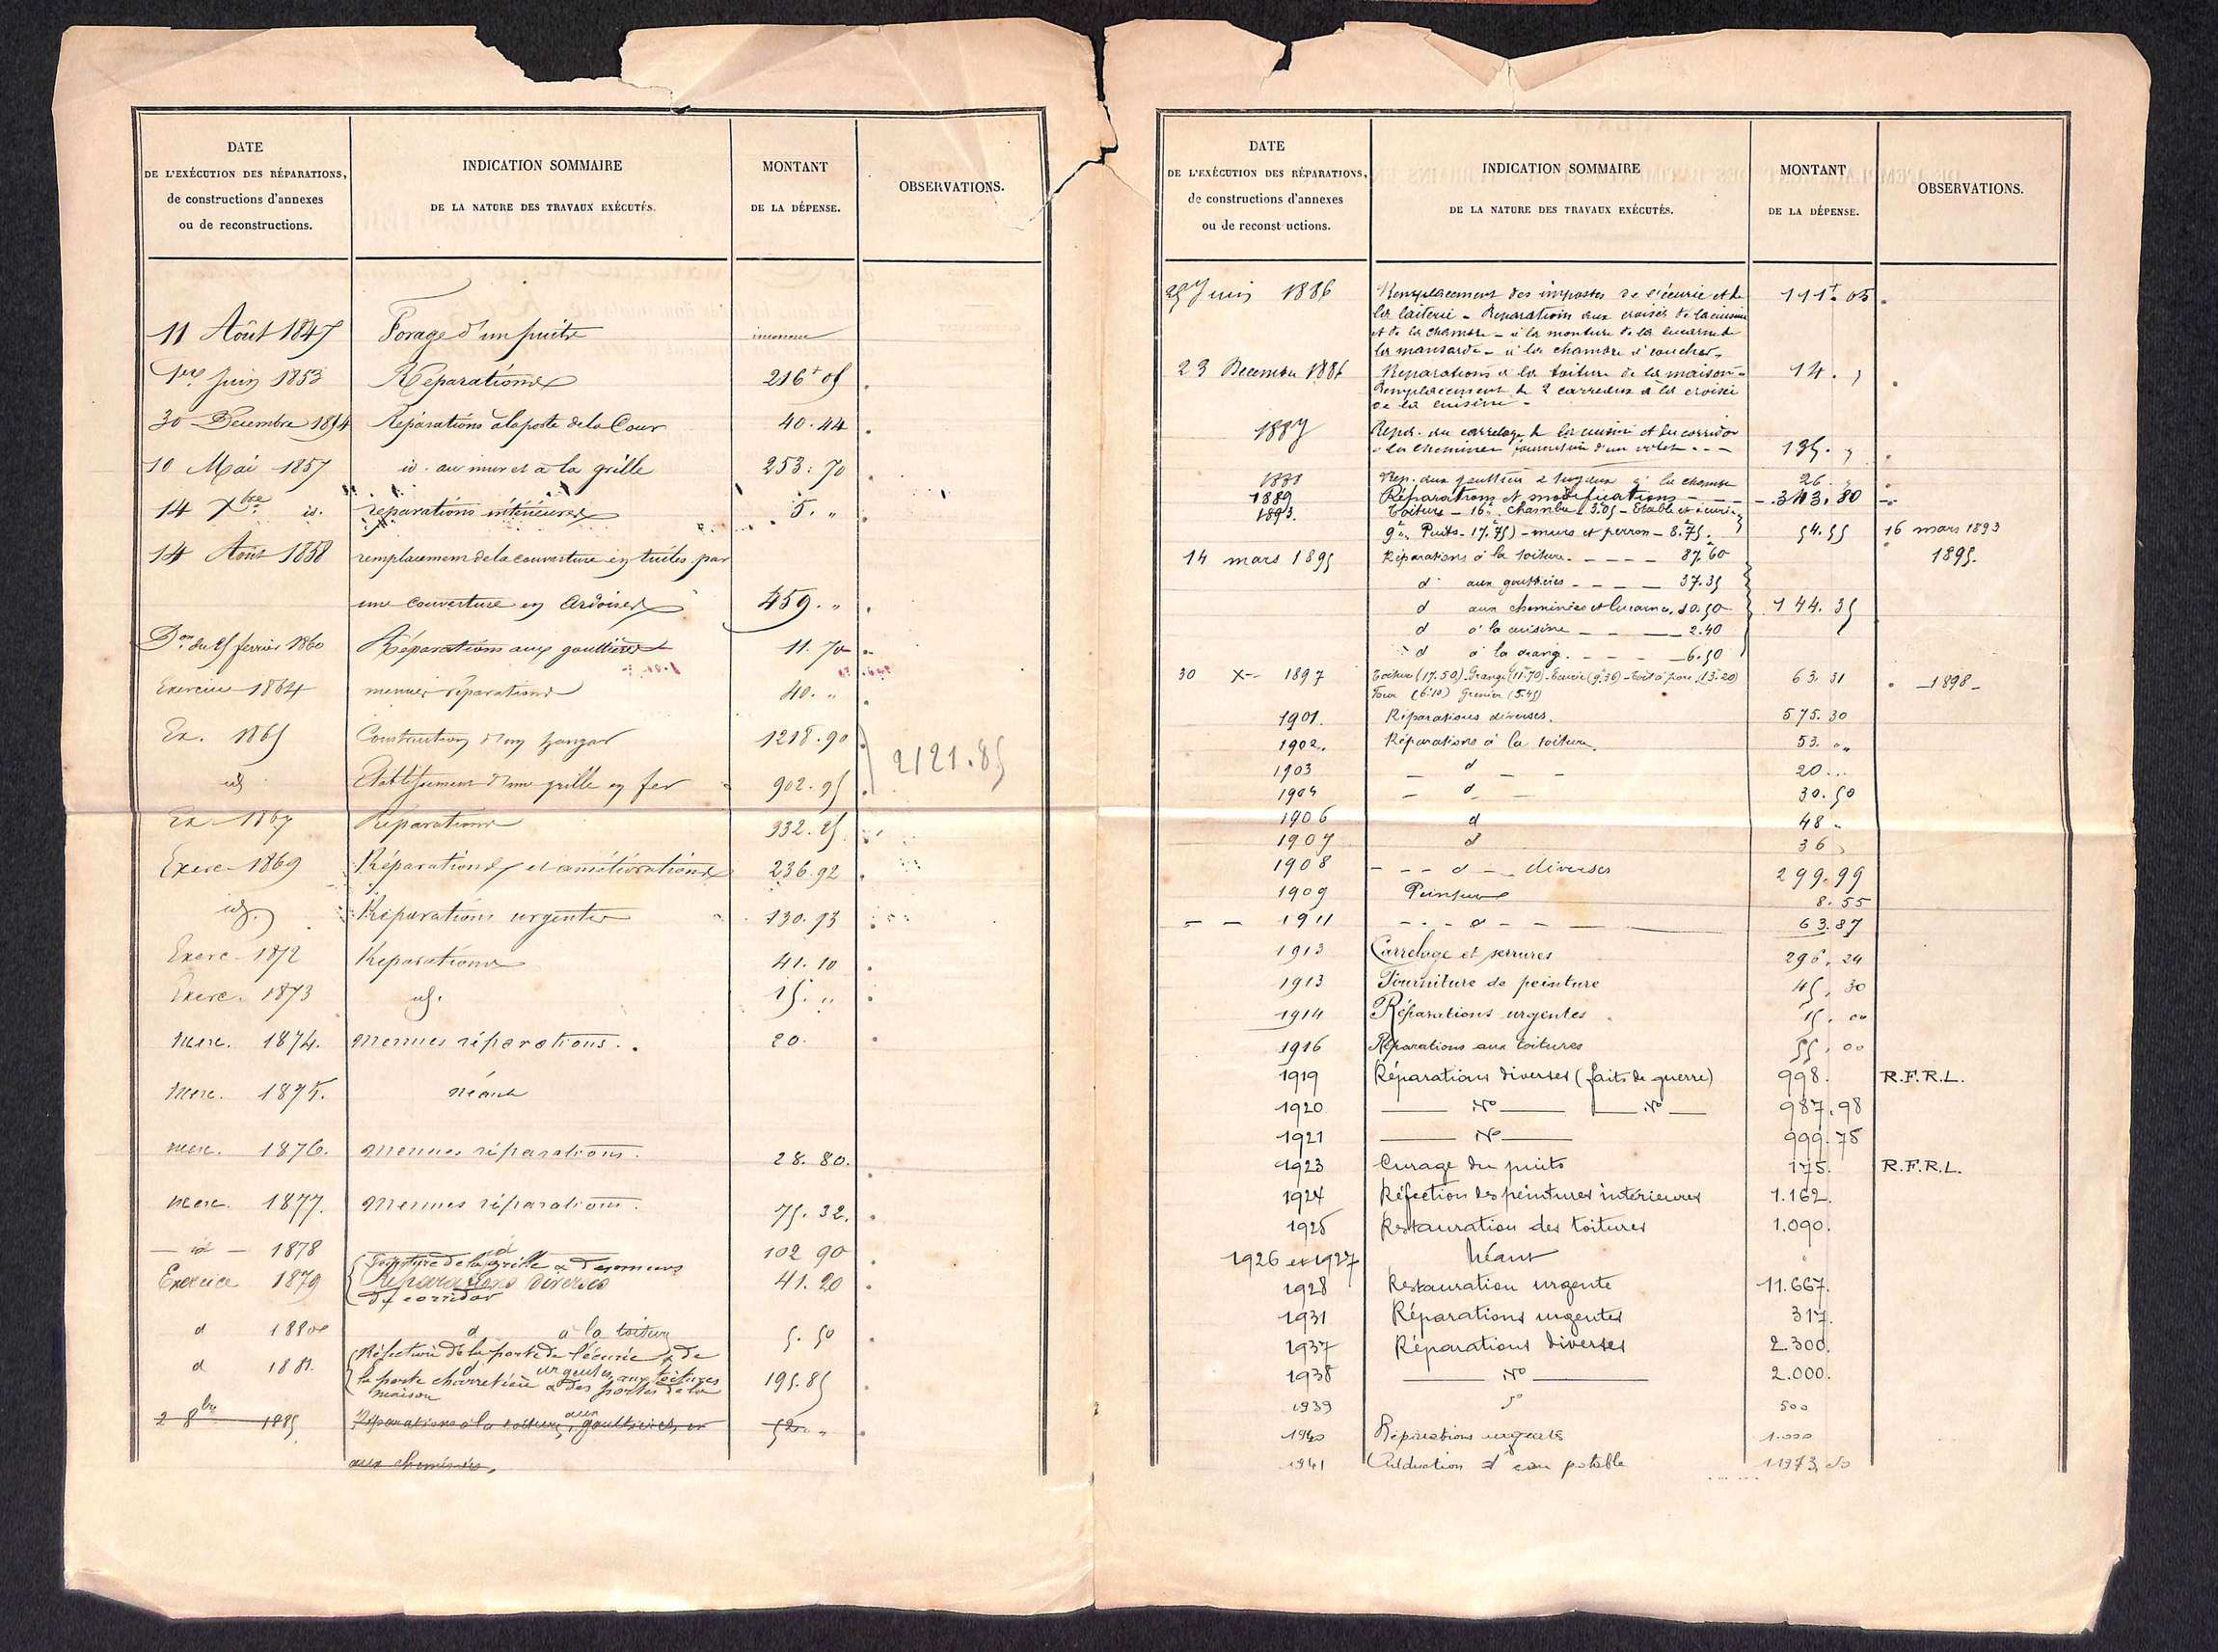 DATE
DE L'EXÉCUTION DES RÉPARATIONS,
de constructions d'annexes
ou de reconstructions.
INDICATION SOMMAIRE
DE LA NATURE DES TRAVAUX EXÉCUTÉS.
MONTANT
DE LA DÉPENSE.
OBSERVATIONS.
11 Août 1847 Forage d'un puits inconnu
1er Juin 1853 Réparations 216f 05
30 Décembre 1854 Réparations à la porte de la Cour 40.44
10 Mai 1857 id. au mur et à la grille 253.70
14 Xbre id. réparations intérieures 5. "
14 Août 1858 remplacement de la couverture en tuiles par
une couverture en Ardoises 459. "
Don du 25 février 1860 Réparations aux gouttières 11.70
Exercice 1864 menues réparations 40. "
Ex. 1865 Construction d'un hangar 1218.90
id Etablissement d'une grille en fer 902.95
2121.85
Ex 1867 Réparations 332.25
Exerc 1869 Réparations et améliorations 236.92
id. Réparations urgentes 130.93
Exerc 1872 Réparations 41.10
Exerc. 1873 id. 15. "
Exerc. 1874. menues réparations. 20.
Exerc. 1875. néant
Exerc. 1876. menues réparations. 28.80.
Exerc. 1877. menues réparations. 75.32.
— id — 1878 id 102 90
Peinture de la grille & des murs
Exercice 1879 Réparations diverses 41.20
du corridor
d 1880 d à la toiture 5.50
Réfection de la porte de l'écurie, de
d 1881. d urgentes aux toitures 195.85
la porte charretière & des portes de la
maison
2 8bre 1885 Réparations à la toiture, aux gouttières, et 52 "
aux cheminées.
DATE
DE L'EXÉCUTION DES RÉPARATIONS,
de constructions d'annexes
ou de reconst uctions.
INDICATION SOMMAIRE
DE LA NATURE DES TRAVAUX EXÉCUTÉS.
MONTANT
DE LA DÉPENSE.
OBSERVATIONS.
25 Juin 1886 Remplacement des impostes de l'écurie et de 111f.05
la laiterie - Réparations aux croisées de la cuisine
et de la chambre - à la monture de la lucarne de
la mansarde - à la chambre à coucher.
23 Décembre 1886 Réparations à la toiture de la maison - 14. "
Remplacement de 2 carreaux à la croisée
de la cuisine -
1887 Répar. du carrelage de la cuisine et du corridor
la cheminée fourniture d'un volet - - 135. "
1888 Rép. aux gouttières 2 tuyaux à la chambre 26. "
1889 Réparations et modifications - - - 343.80
1893. Toiture - 16" Chambre 3.05 - Etable et écurie
9". Puits - 17.75) - murs et perron - 8.75. 54.55 16 mars 1893
14 mars 1895 Réparations à la toiture - - - - 87.60 1895.
d° aux gouttières - - - - 37.35
d aux cheminées et lucarnes. 10.50 144.35
d à la cuisine - - - 2.40
d à la grang. - - - 6.50
30 X-- 1897 Toiture (17.50) - Grange (11.70) - Ecurie (9.36) - Toit à porc (13.20) 63.31 1898 -
Four (6.10) Grenier (5.45)
1901. Réparations diverses. 575.30
1902. Réparations à la toiture. 53. ""
1903 — d — — 20...
1904 — d — 30.50
1906 d 48 "
1907 d 36 "
1908 - - - d - - diverses 299.99
1909 Peinture 8.55
- - 1911 - - - d - - 63.87
1913 Carrelage et serrures 296,24
1913 Fourniture de peinture 45,30
1914 Réparations urgentes. 15,00
1916 Réparations aux toitures 55,00
1919 Réparations diverses (faits de guerre) 998. R.F.R.L.
1920 — No — — No — 987.98
1921 — No — 999.75
1923 Curage du puits 175. R.F.R.L.
1924 Réfection des peintures intérieures 1.162.
1925 Restauration des toitures 1.090.
1926 et 1927 Néant
1928 Restauration urgente 11.667.
1931 Réparations urgentes 317.
1937 Réparations diverses 2.300.
1938 — No — 2.000.
1939 d° 500
1940 Réparations urgentes 1.000
1941 Adduction d'eau potable 11973,50